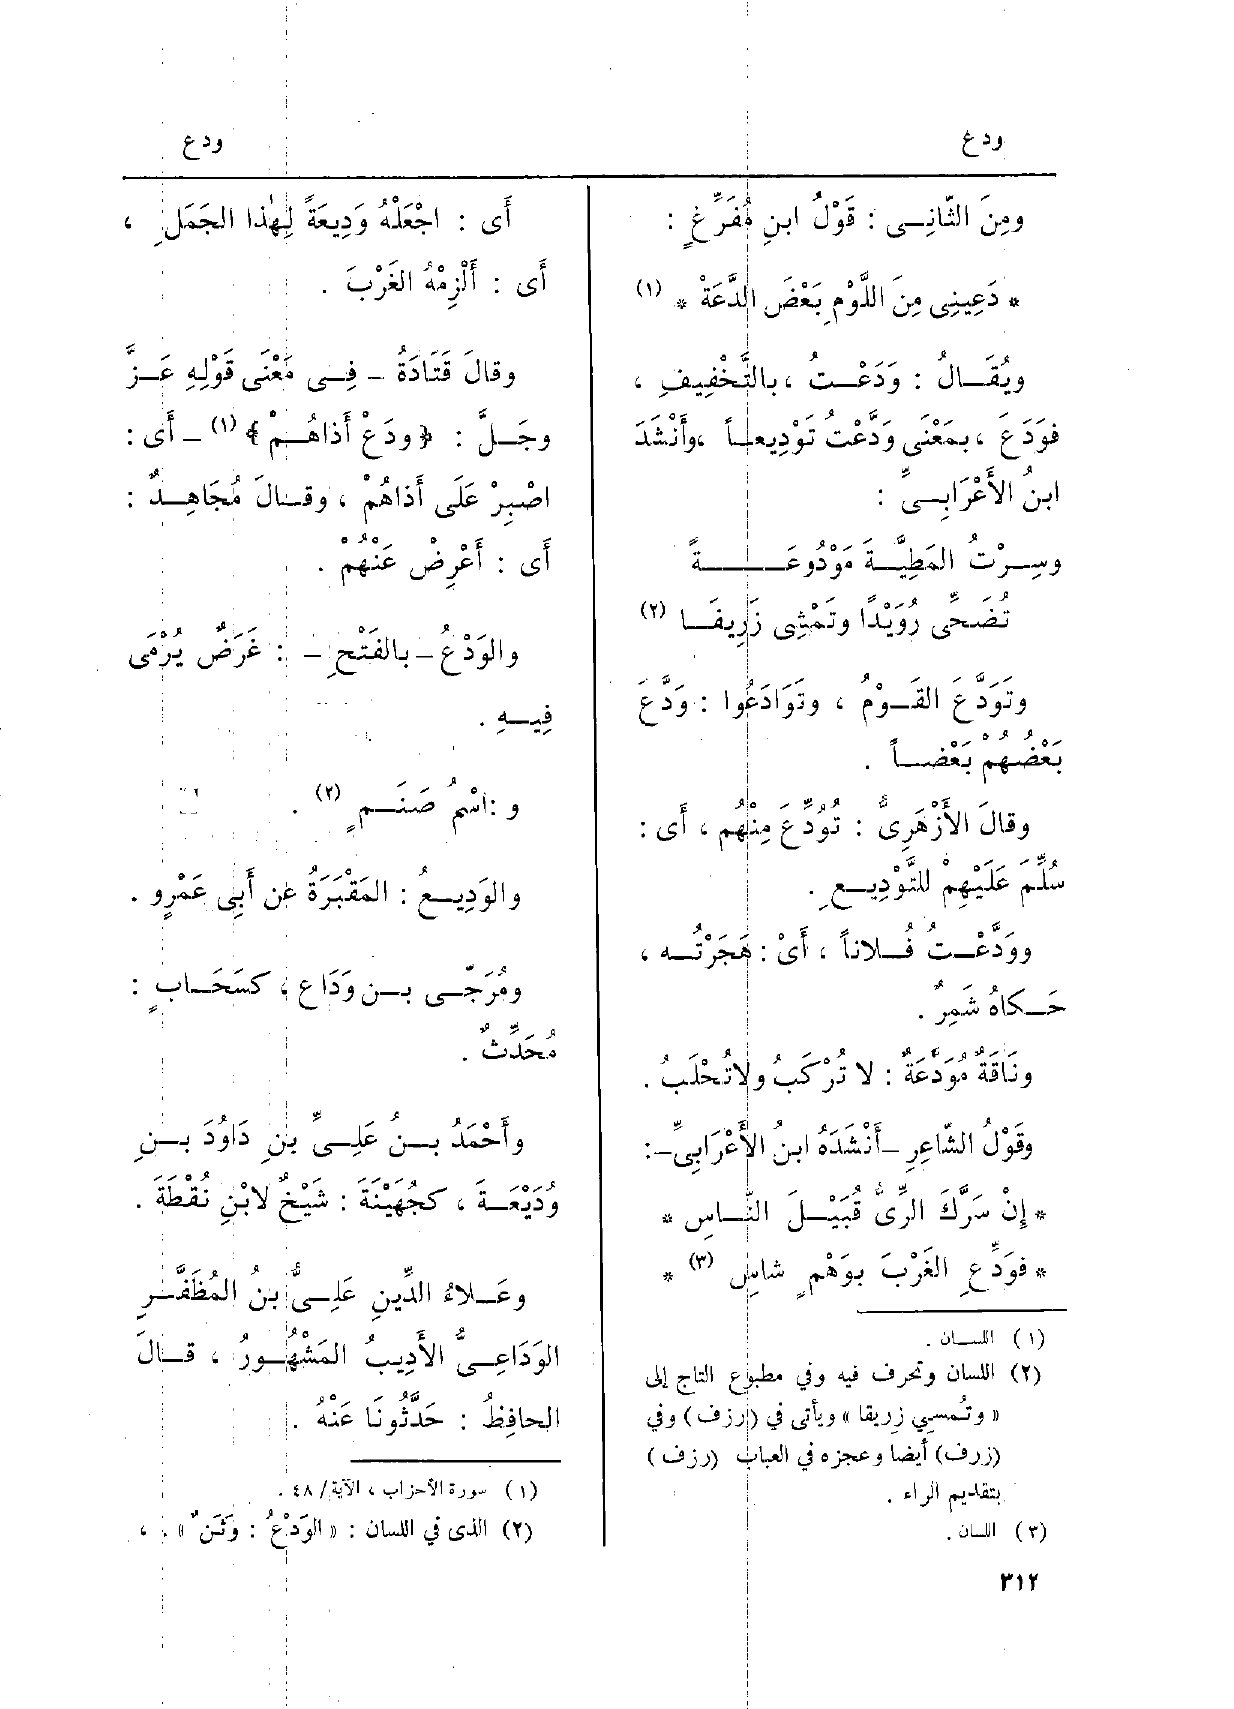 ودع
ودع
ومِنَ الثّانِــى : قَوْلُ ابنِ مُفَرِّغٍ :
* دَعِينِى مِنَ اللَّوْمِ بَعْضَ الدَّعَةْ * (١)
ويُقَــالُ : وَدَعْــتُ ، بالتَّخْفِيفِ ،
فوَدَعَ ، بمَعْنَى وَدَّعْتُ تَوْدِيعــاً ، وأَنْشَدَ
ابنُ الأَعْرَابِــىِّ :
وسِــرْتُ المَطِيَّــةَ مَوْدُوعَــــــةً
تُضَحِّى رُوَيْدًا وتَمْشِى زَرِيفَــا (٢)
وتَوَدَّعَ القَــوْمُ ، وتَوَادَعُوا : وَدَّعَ
بَعْضُهُمْ بَعْضــاً .
وقالَ الأَزْهَرِىُّ : تُوُدِّعَ مِنْهُم ، أَى :
سُلِّمَ عَلَيْهِمْ للتَّوْدِيــعِ .
ووَدَّعْــتُ فُــلاناً ، أَىْ : هَجَرْتُــه ،
حَــكاهُ شَمِرٌ .
ونَاقَةٌ مُوَدَّعَةٌ : لا تُرْكَبُ ولاتُحْلَبُ .
وقَوْلُ الشّاعِرِ ــ أَنْشَدَهُ ابنُ الأَعْرَابِىِّ ــ :
* إِنْ سَرَّكَ الرِّىُّ قُبَيْــلَ النّــاسِ *
* فوَدِّعِ الغَرْبَ بوَهْمٍ شاسِ (٣) *
(١) اللســان .
(٢) اللسان وتحرف فيه وفي مطبوع التاج إلى
« وتمسي زريقا » ويأتى في (رزف) وفي
(زرف) أيضا وعجزه في العباب (رزف)
بتقديم الراء .
(٣) اللسان .
٣١٢
أَى : اجْعَلْهُ وَدِيعَةً لِهٰذا الجَمَلِ ،
أَى : أَلْزِمْهُ الغَرْبَ .
وقالَ قَتَادَةُ ــ فِــى مَعْنَى قَوْلِهِ عَــزَّ
وجَــلَّ : ﴿ ودَعْ أَذاهُــمْ ﴾ (١) ــ أَى :
اصْبِرْ عَلَى أَذاهُمْ ، وقــالَ مُجَاهِــدٌ :
أَى : أَعْرِضْ عَنْهُمْ .
والوَدْعُ ــ بالفَتْحِ ــ : غَرَضٌ يُرْمَى
فِيــهِ .
و : اسْمُ صَنَــمٍ (٢) .
والوَدِيــعُ : المَقْبَرَةُ عن أَبِى عَمْرٍو .
ومُرَجّــى بــن وَدَاعٍ ، كسَحَــابٍ :
مُحَدِّثٌ .
وأَحْمَدُ بــنُ عَلِــىِّ بْنِ دَاوُدَ بــنِ
وُدَيْعَــةَ ، كجُهَيْنَةَ : شَيْخٌ لابْنِ نُقْطَةَ .
وعَــلاءُ الدِّينِ عَلِــىُّ بنُ المُظَفَّــرِ
الوَدَاعِــىُّ الأَدِيبُ المَشْهُــورُ ، قــالَ
الحافِظُ : حَدَّثُونَا عَنْهُ .
(١) سورة الأحزاب ، الآية/ ٤٨ .
(٢) الذى في اللسان : « الوَدْعُ : وَثَنٌ » . ،